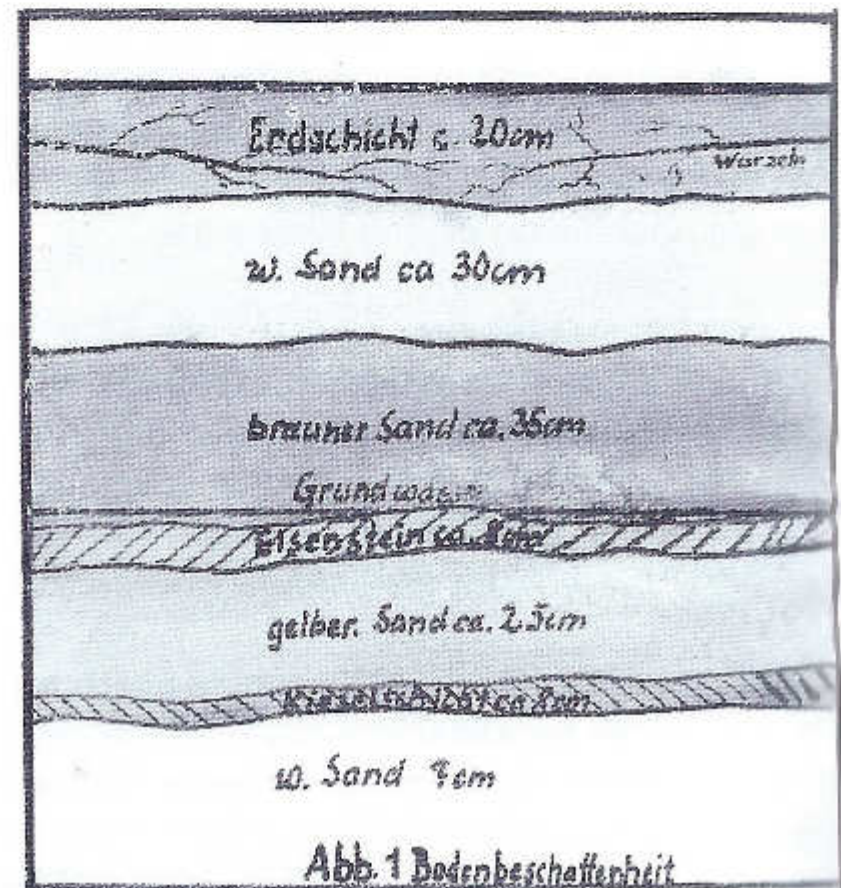 Erdschicht c. 20cm
Wurzeln
w. Sand ca 30cm
brauner Sand ca. 35cm
Grundwasser
Eisenstein ca.
gelber. Sand ca. 25cm
ca 8cm
w. Sand ?cm
Abb. 1 Bodenbeschaffenheit